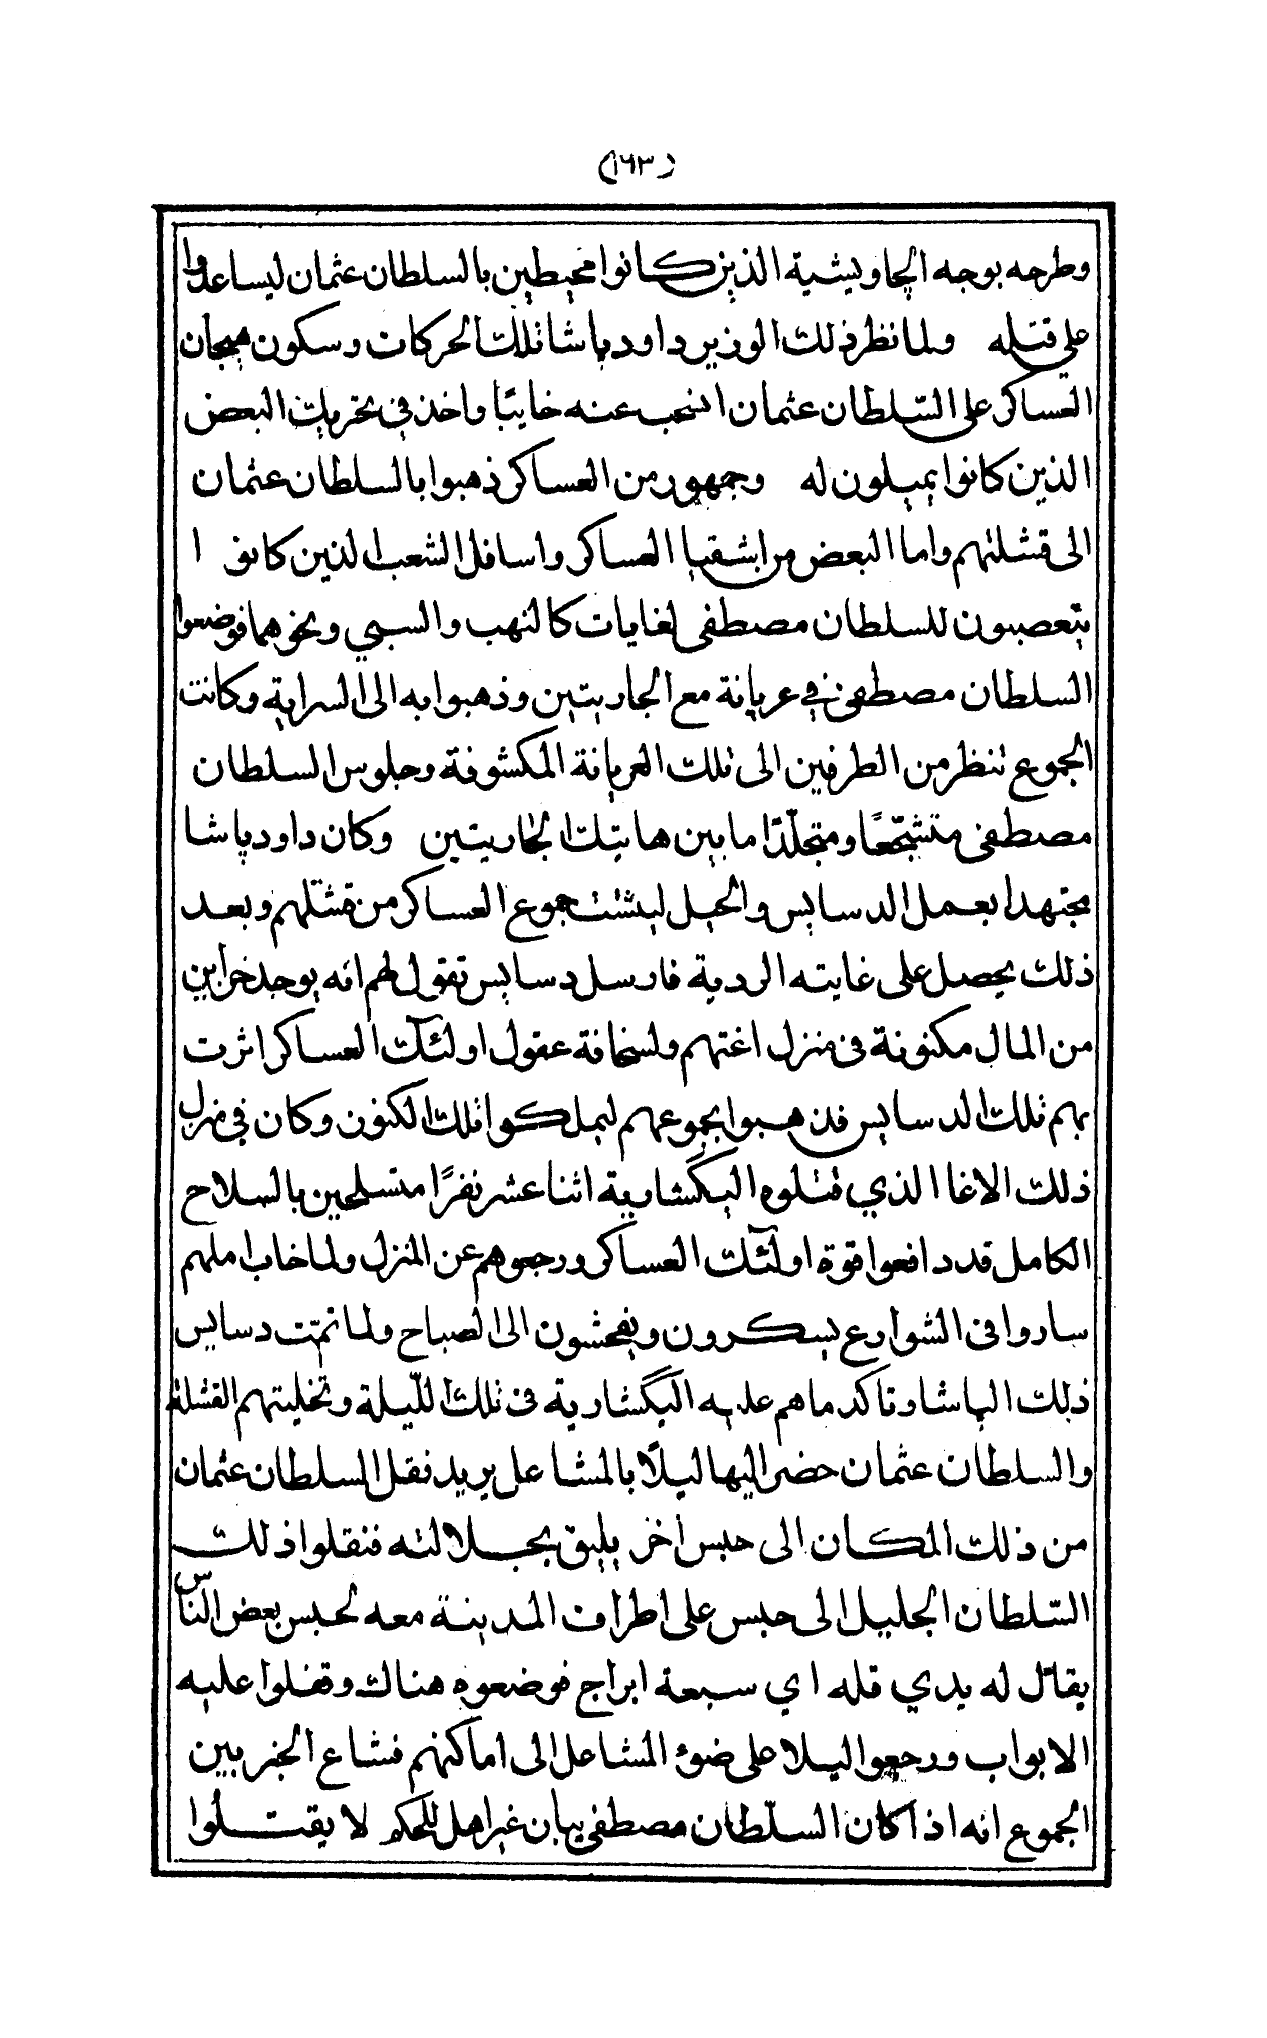 (١٦٣)
وطرحه بوجه الجاويشية الذين كانوا محيطين بالسلطان عثمان ليساعدوا
على قتله ولما نظر ذلك الوزير داود پاشا تلك الحركات وسكون هيجان
العساكر على السّلطان عثمان انسحب عنه خايبًا واخذ في تحريك البعض
الذين كانوا يميلون له وجمهور من العساكر ذهبوا بالسلطان عثمان
الى قشلتهم واما البعض من اشقيا العساكر واسافل الشعب الذين كانوا
يتعصبون للسلطان مصطفى لغايات كالنهب والسبي ونحوهما فوضعوا
السلطان مصطفى في عربانة مع الجاريتين وذهبوا به الى السراية وكانت
الجموع تنظر من الطرفين الى تلك العربانة المكشوفة وجلوس السلطان
مصطفى متشجّعًا ومتجلّدًا ما بين هاتيك الجاريتين وكان داود پاشا
مجتهدا بعمل الدسايس والحيل ليشتت جموع العساكر من قشلتهم وبعد
ذلك يحصل على غايته الردية فارسل دسايس تقول لهم انه يوجد خزاين
من المال مكنونة في منزل اغتهم ولسخافة عقول اولئك العساكر اثرت
بهم تلك الدسايس فذهبوا بجموعهم ليملكوا تلك الكنوز وكان في منزل
ذلك الاغا الذي قتلوه اليگشارية اثنا عشر نفرًا متسلحين بالسلاح
الكامل قد دافعوا قوة اولئك العساكر ورجعوهم عن المنزل ولما خاب املهم
ساروا في الشوارع يسكرون ويفحشون الى الصباح ولما تمّت دسايس
ذلك الپاشا وتاكد ما هم عليه اليگشارية في تلك اللّيلة وتخليتهم القشلة
والسلطان عثمان حضر اليها ليلًا بالمشاعل يريد نقل السلطان عثمان
من ذلك المكان الى حبس آخر يليق بجلالته فنقلوا ذلك
السّلطان الجليل الى حبس على اطراف المدينة معه لحبس بعض الناس
يقال له يدي قله اي سبعة ابراج فوضعوه هناك وقفلوا عليه
الابواب ورجعوا ليلا على ضوء المشاعل الى اماكنهم فشاع الخبر بين
الجموع انه اذا كان السلّطان مصطفى يبان غير اهل للحكم لا يقتلوا